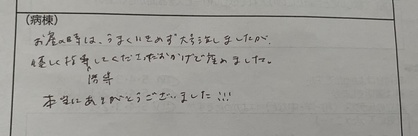 (病棟)
お産の時は、うまくいきめず大号泣しましたが、
優しく指導してくださったおかげで産めました。
本当にありがとうございました!!!